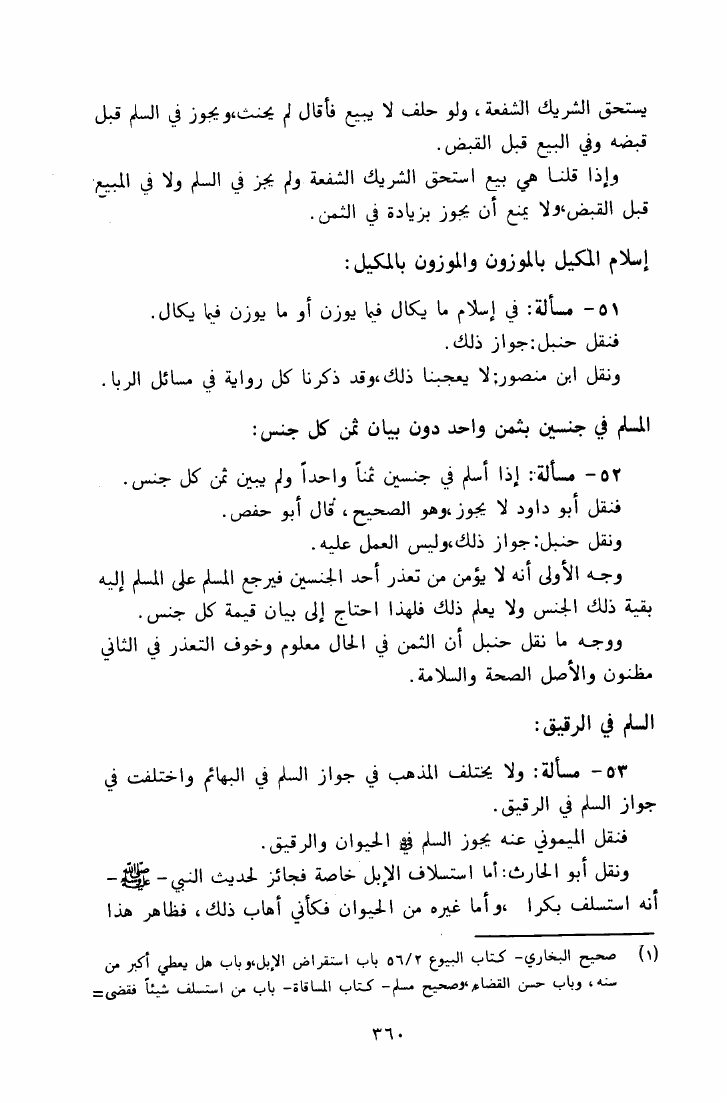 يستحق الشريك الشفعة، ولو حلف لا يبيع فأقال لم يحنث،ويجوز في السلم قبل
قبضه وفي البيع قبل القبض.
وإذا قلنا هي بيع استحق الشريك الشفعة ولم يجز في السلم ولا في المبيع
قبل القبض،ولا يمنع أن يجوز بزيادة في الثمن.
إسلام المكيل بالموزون والموزون بالمكيل:
٥١ - مسألة: في إسلام ما يكال فيما يوزن أو ما يوزن فيما يكال.
فنقل حنبل:جواز ذلك.
ونقل ابن منصور:لا يعجبنا ذلك،وقد ذكرنا كل رواية في مسائل الربا.
المسلم في جنسين بثمن واحد دون بيان ثمن كل جنس:
٥٢ - مسألة: إذا أسلم في جنسين ثمناً واحداً ولم يبين ثمن كل جنس.
فنقل أبو داود لا يجوز،وهو الصحيح، قال أبو حفص.
ونقل حنبل:جواز ذلك،وليس العمل عليه.
وجه الأولى أنه لا يؤمن من تعذر أحد الجنسين فيرجع المسلم على المسلم إليه
بقية ذلك الجنس ولا يعلم ذلك فلهذا احتاج إلى بيان قيمة كل جنس.
ووجه ما نقل حنبل أن الثمن في الحال معلوم وخوف التعذر في الثاني
مظنون والأصل الصحة والسلامة.
السلم في الرقيق:
٥٣ - مسألة: ولا يختلف المذهب في جواز السلم في البهائم واختلفت في
جواز السلم في الرقيق.
فنقل الميموني عنه يجوز السلم في الحيوان والرقيق.
ونقل أبو الحارث:أما استسلاف الإبل خاصة فجائز لحديث النبي - ﷺ -
أنه استسلف بكرا ،وأما غيره من الحيوان فكأني أهاب ذلك، فظاهر هذا
(١) صحيح البخاري- كتاب البيوع ٥٦/٢ باب استقراض الإبل،وباب هل يعطي أكبر من
سنه، وباب حسن القضاء،وصحيح مسلم- كتاب المساقاة- باب من استسلف شيئاً فقضى=
٣٦٠